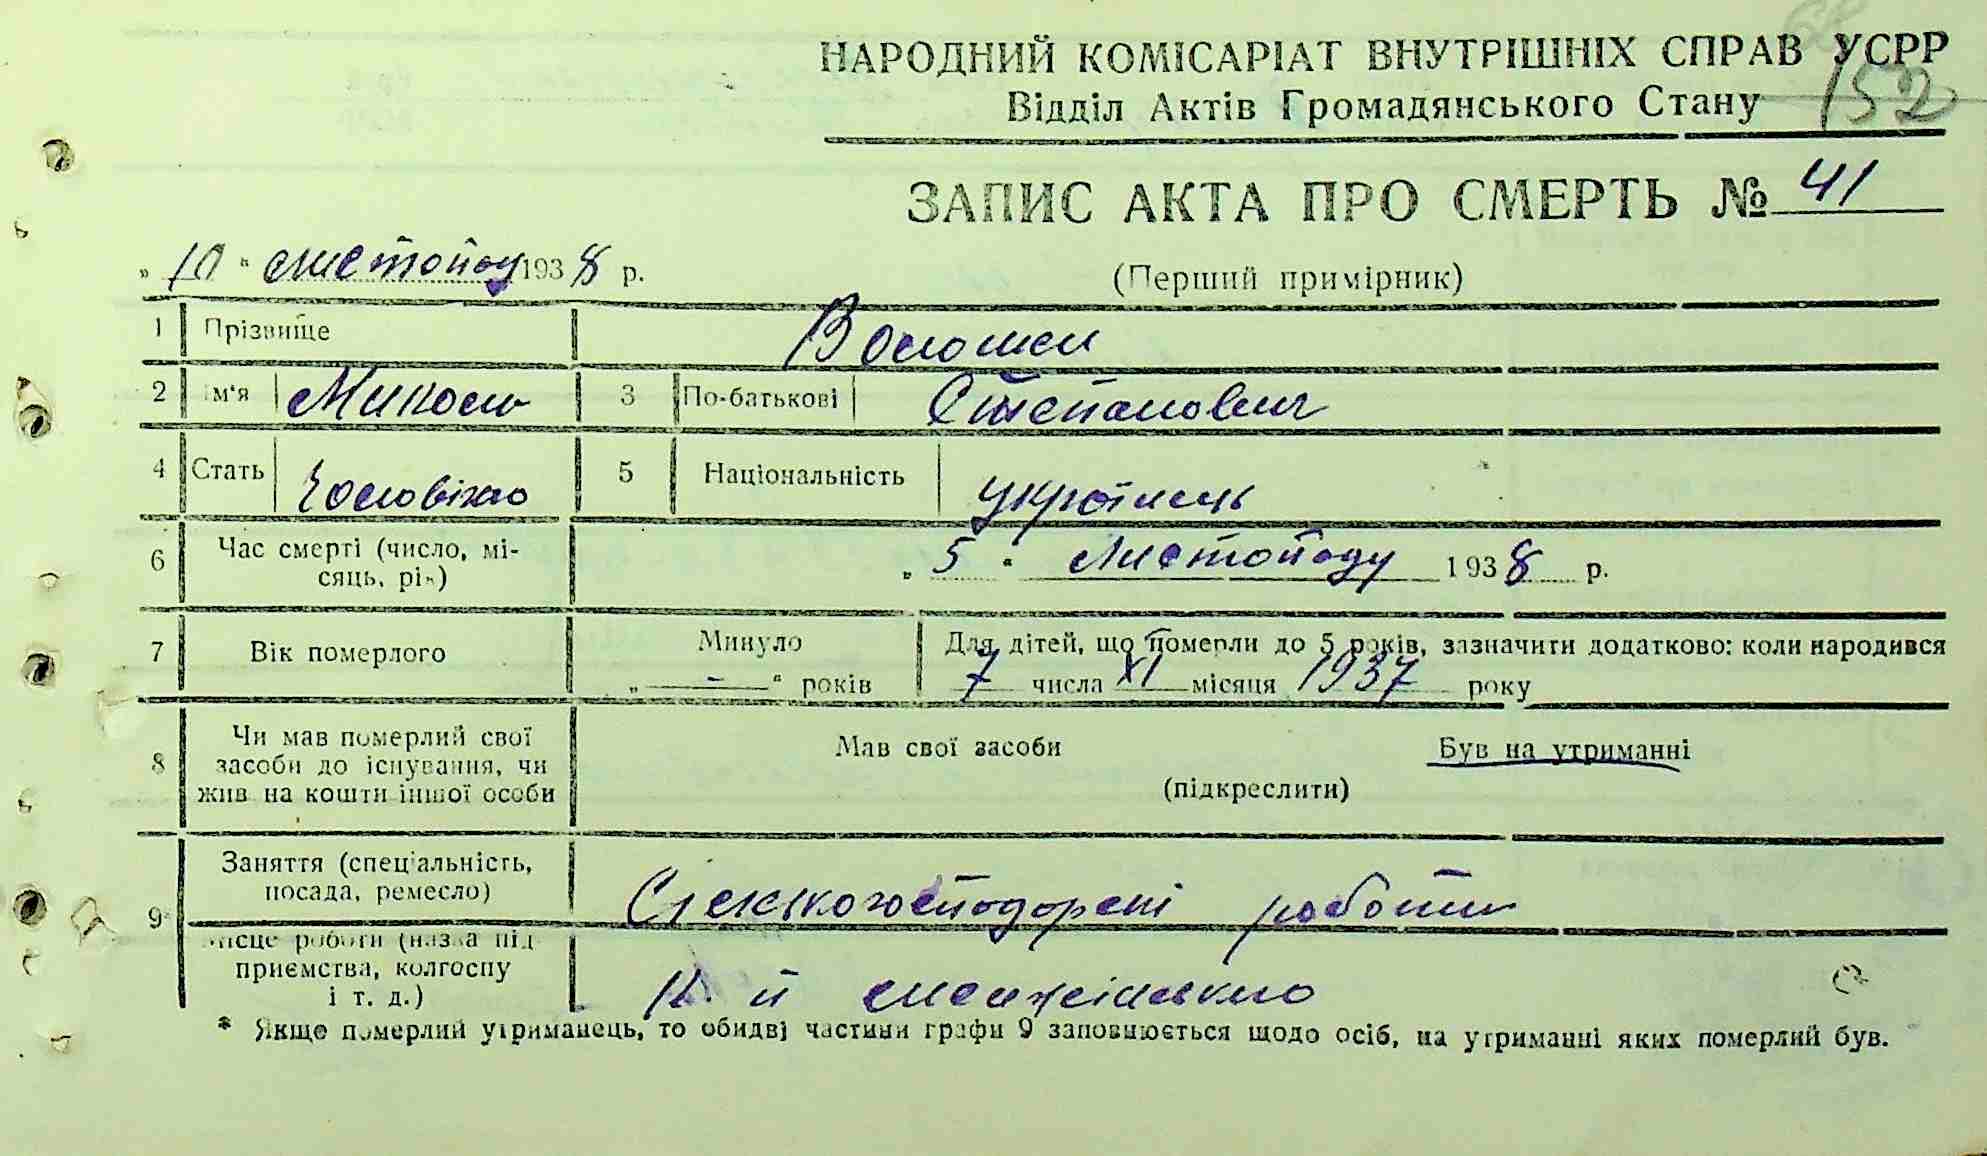 НАРОДНИЙ КОМІСАРІАТ ВНУТРІШНІХ СПРАВ УСРР
152
Відділ Актів Громадянського Стану
ЗАПИС АКТА ПРО СМЕРТЬ № 41
„ 10 “ листоподу 1938 р.
(Перший примірник)
1 Прізвище Волошен
2 Ім‘я Микола 3 По-батькові Степанович
4 Стать Чоловіча 5 Національність українець
6 Час смерті (число, мі-
сяць, рік) „ 5 “ листоподу 1938 р.
7 Вік померлого Минуло „ - “ років
Для дітей, що померли до 5 років, зазначити додатково: коли народився
7 числа XI місяця 1937 року
8 Чи мав померлий свої
засоби до існування, чи
жив на кошти іншої особи
Мав свої засоби Був на утриманні
(підкреслити)
9 Заняття (спеціальність,
посада, ремесло)
роботи
Місце роботи (назва під-
приємства, колгоспу
і т. д.)
* Якще померлий утриманець, то обидві частини графи 9 заповнюється щодо осіб, на утриманні яких померлий був.